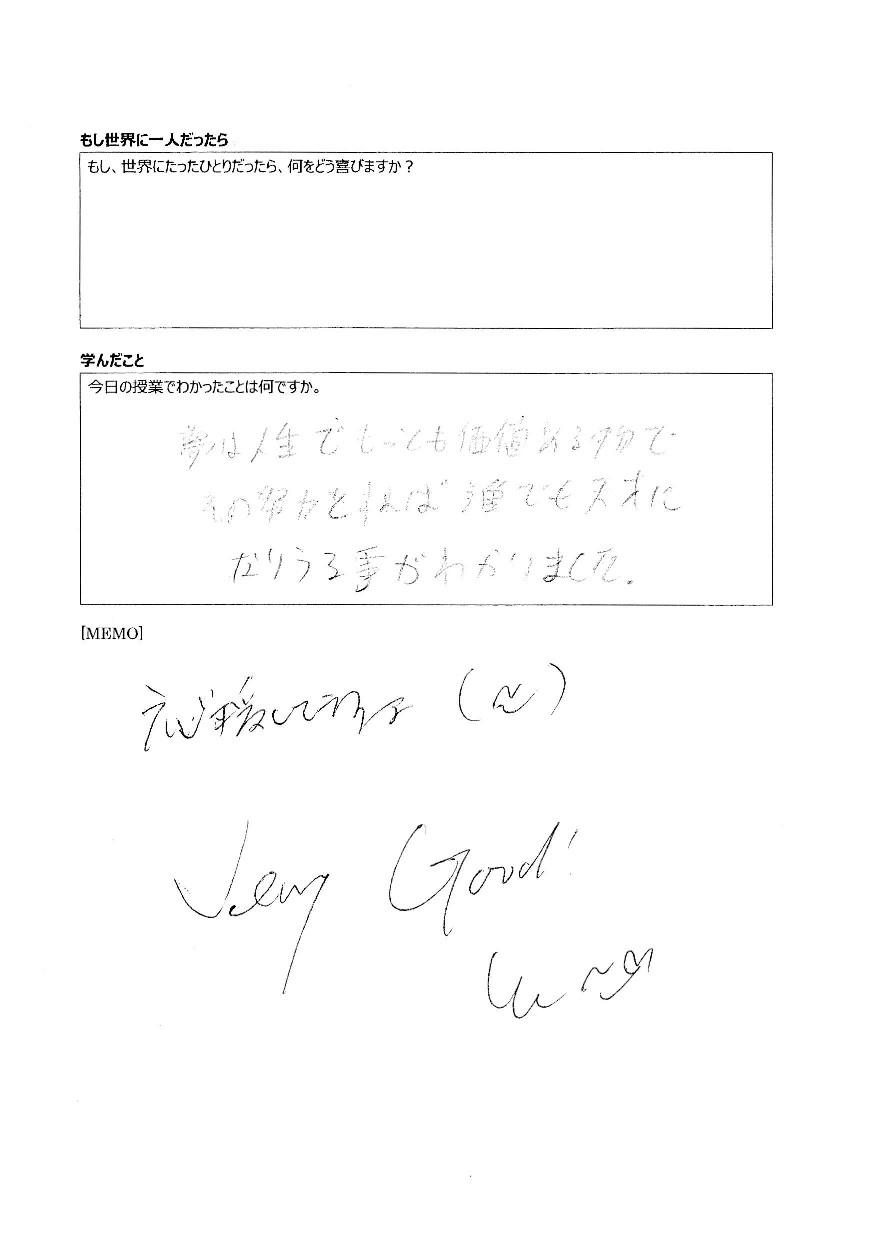 もし世界に一人だったら
もし、世界にたったひとりだったら、何をどう喜びますか？
学んだこと
今日の授業でわかったことは何ですか。
夢は人生でもっとも価値ある物で
その努力をすれば誰でも天才に
なりうる事がわかりました。
[MEMO]
応援して
Very Good!